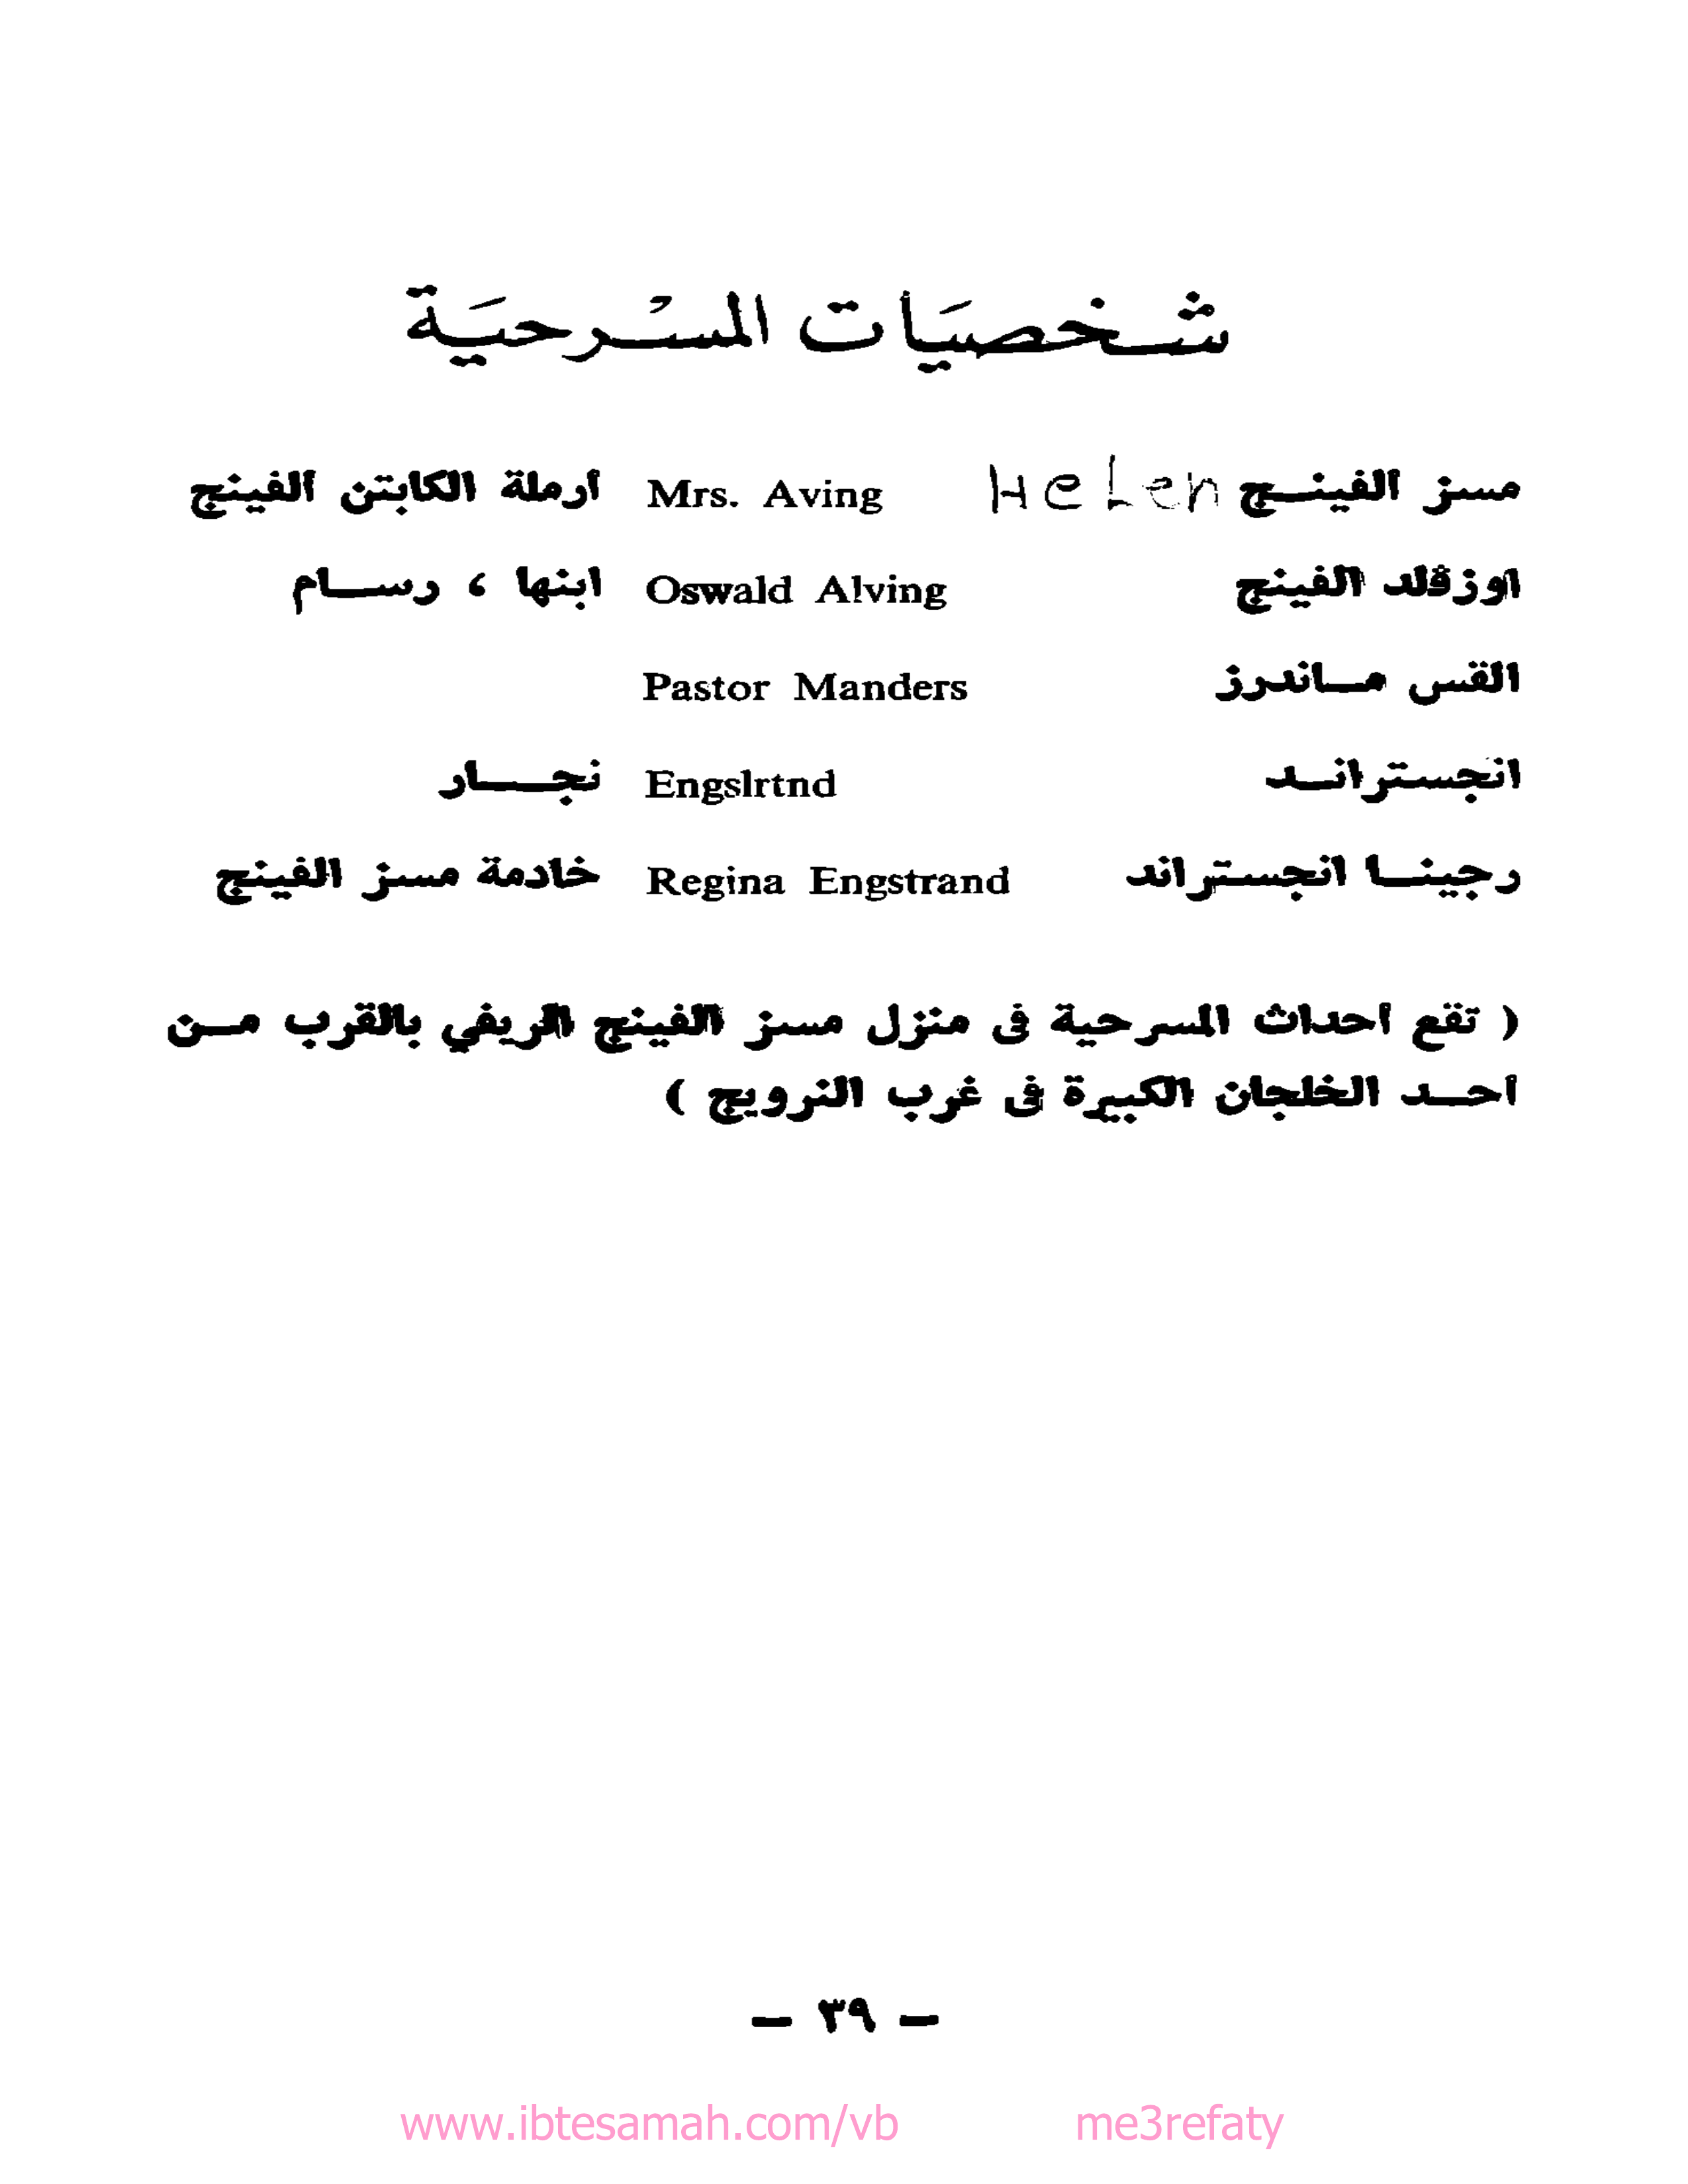 شخصيات المسرحية
مسز الفينج Helen Mrs. Aving أرملة الكابتن الفينج
اوزڤلد الفينج Oswald Alving ابنها ، رسام
القس ماندرز Pastor Manders
انجستراند Engslrtnd نجار
رجينا انجستراند Regina Engstrand خادمة مسز الفينج
( تقع أحداث المسرحية فى منزل مسز الفينج الريفي بالقرب من
أحد الخلجان الكبيرة فى غرب النرويج )
— ٣٩ —
www.ibtesamah.com/vb me3refaty